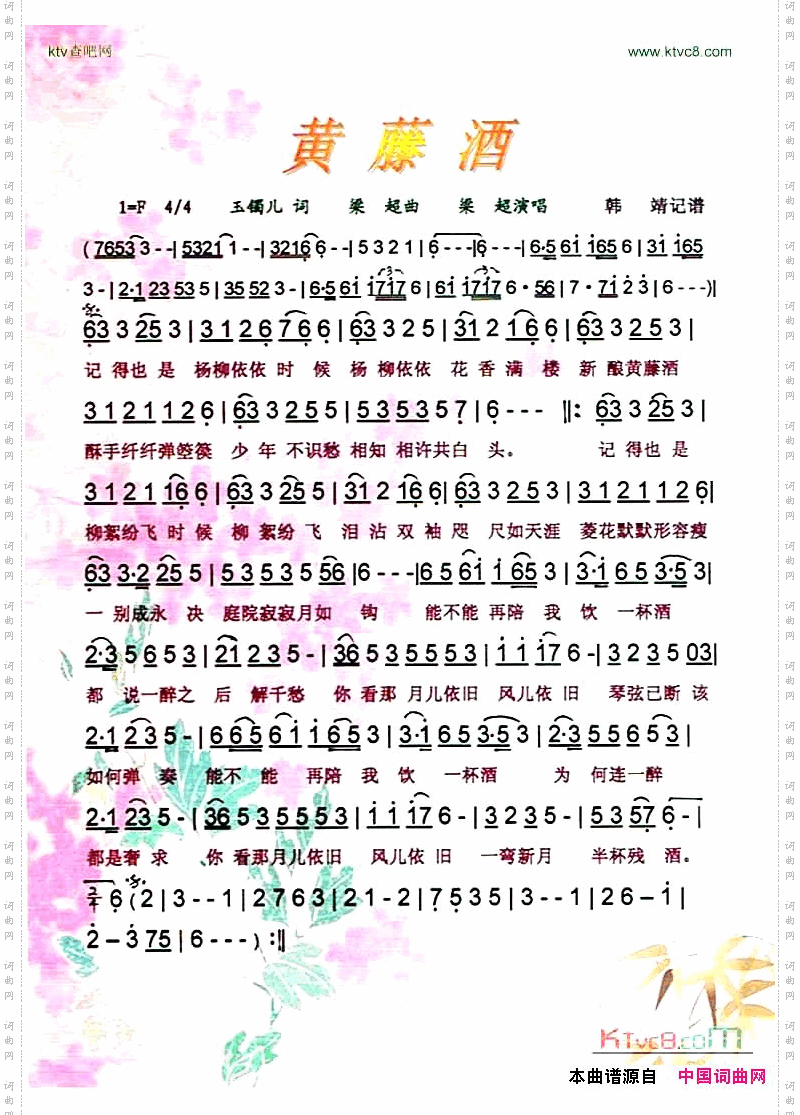 ktv查吧网 www.ktvc8.com
黄藤酒
1=F 4/4 玉镯儿 词 梁 超曲 梁 超演唱 韩 靖记谱
(76533--|53211--|32166--|5321|6---|6---|6·5 61 165 6|31 165
3-|2·1 23 53 5|35 52 3-|6·5 61 1717 6|61 1717 6·56|7·71 2 3|6---)|
63 3 25 3|3 1 2 6 7 6 6|63 3 2 5|31 2 16 6|63 3 2 5 3|
记 得也 是 杨柳依依 时 候 杨 柳依依 花 香 满 楼 新 酿黄藤酒
3 1 2 1 1 2 6|63 3 2 5 5|5 3 5 3 5 7|6--- ‖: 63 3 25 3|
酥手纤纤弹箜篌 少 年 不识愁 相知 相许共白 头。 记 得也 是
3 1 2 1 16 6|63 3 25 5|31 2 16 6|63 3 2 5 3|3 1 2 1 1 2 6|
柳絮纷飞 时 候 柳 絮纷 飞 泪 沾 双 袖 咫 尺如天涯 菱花默默形容瘦
63 3·2 25 5|5 3 5 3 5 56|6---|6 5 61 1 65 3|3·1 6 5 3·5 3|
一 别成永 决 庭院寂寂月如 钩 能不能 再陪 我 饮 一杯酒
2·3 5 6 5 3|21 2 3 5-|36 5 3 5 5 5 3|1 1 17 6-|3 2 3 5 03|
都 说一醉之 后 解千愁 你 看那 月儿依旧 风儿依 旧 琴弦已断 该
2·1 2 3 5-|6 6 5 6 1 1 6 5 3|3·1 6 5 3·5 3|2·3 5 5 6 5 3|
如何弹 奏 能不 能 再陪 我 饮 一杯酒 为 何连一醉
2·1 23 5-|36 5 3 5 5 5 3|1 1 17 6-|3 2 3 5-|5 3 57 6-|
都是奢 求 你 看那月儿依旧 风儿依 旧 一弯新月 半杯残 酒。
2/4 6(2|3--1|2763|21-2|7535|3--1|26–1|
2–3 75|6---):‖
KTvc8.com
本曲谱源自 中国词曲网